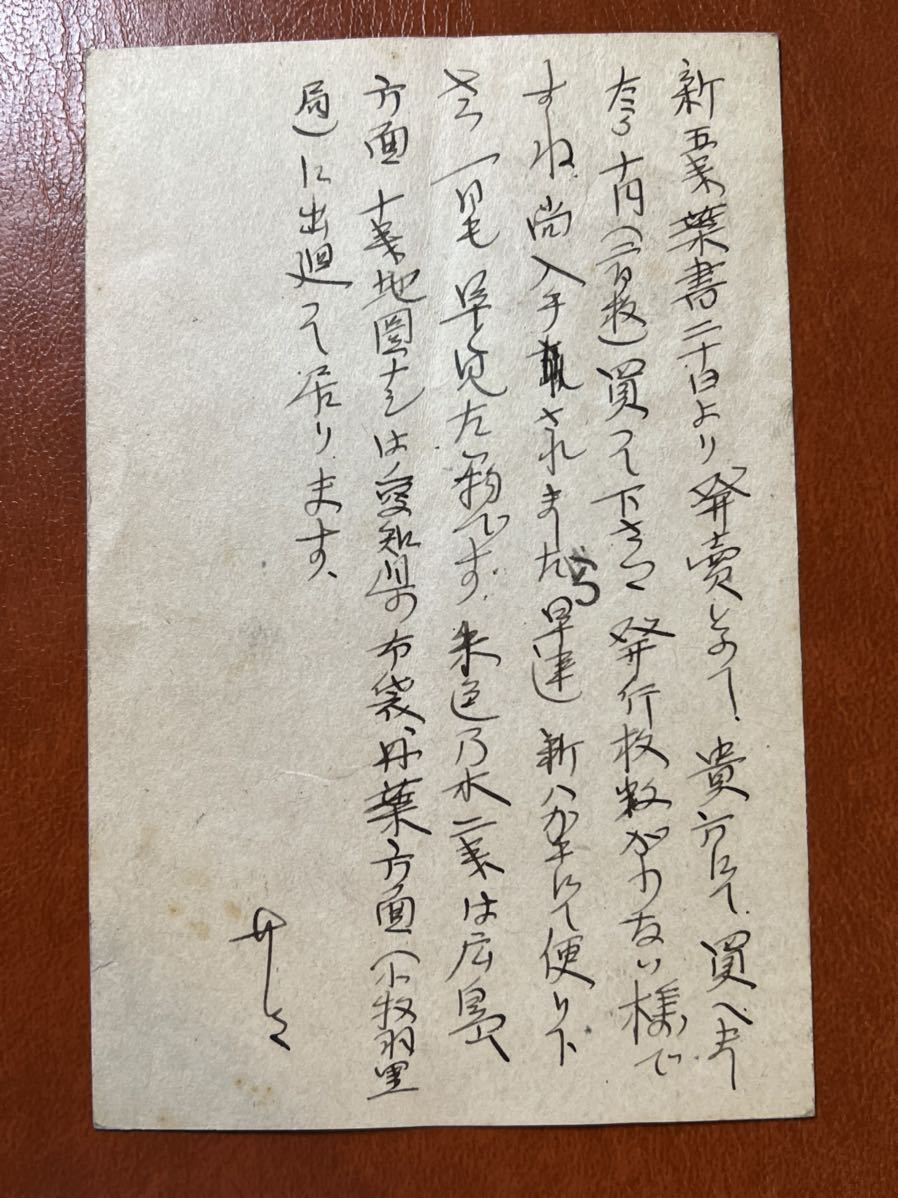 新五銭葉書二十日より発売との事、貴方にて買へまし
たら十円(二百枚)買って下さい 発行枚数が少ない様で
すね 尚入手致されましたら早速新ハガキにて便り下
さい 一日も早く見た物です、朱色乃木二銭は広島
方面 十銭地図などは愛知県の布袋、丹葉方面(小牧羽黒
局)に出廻って居ります、
草々